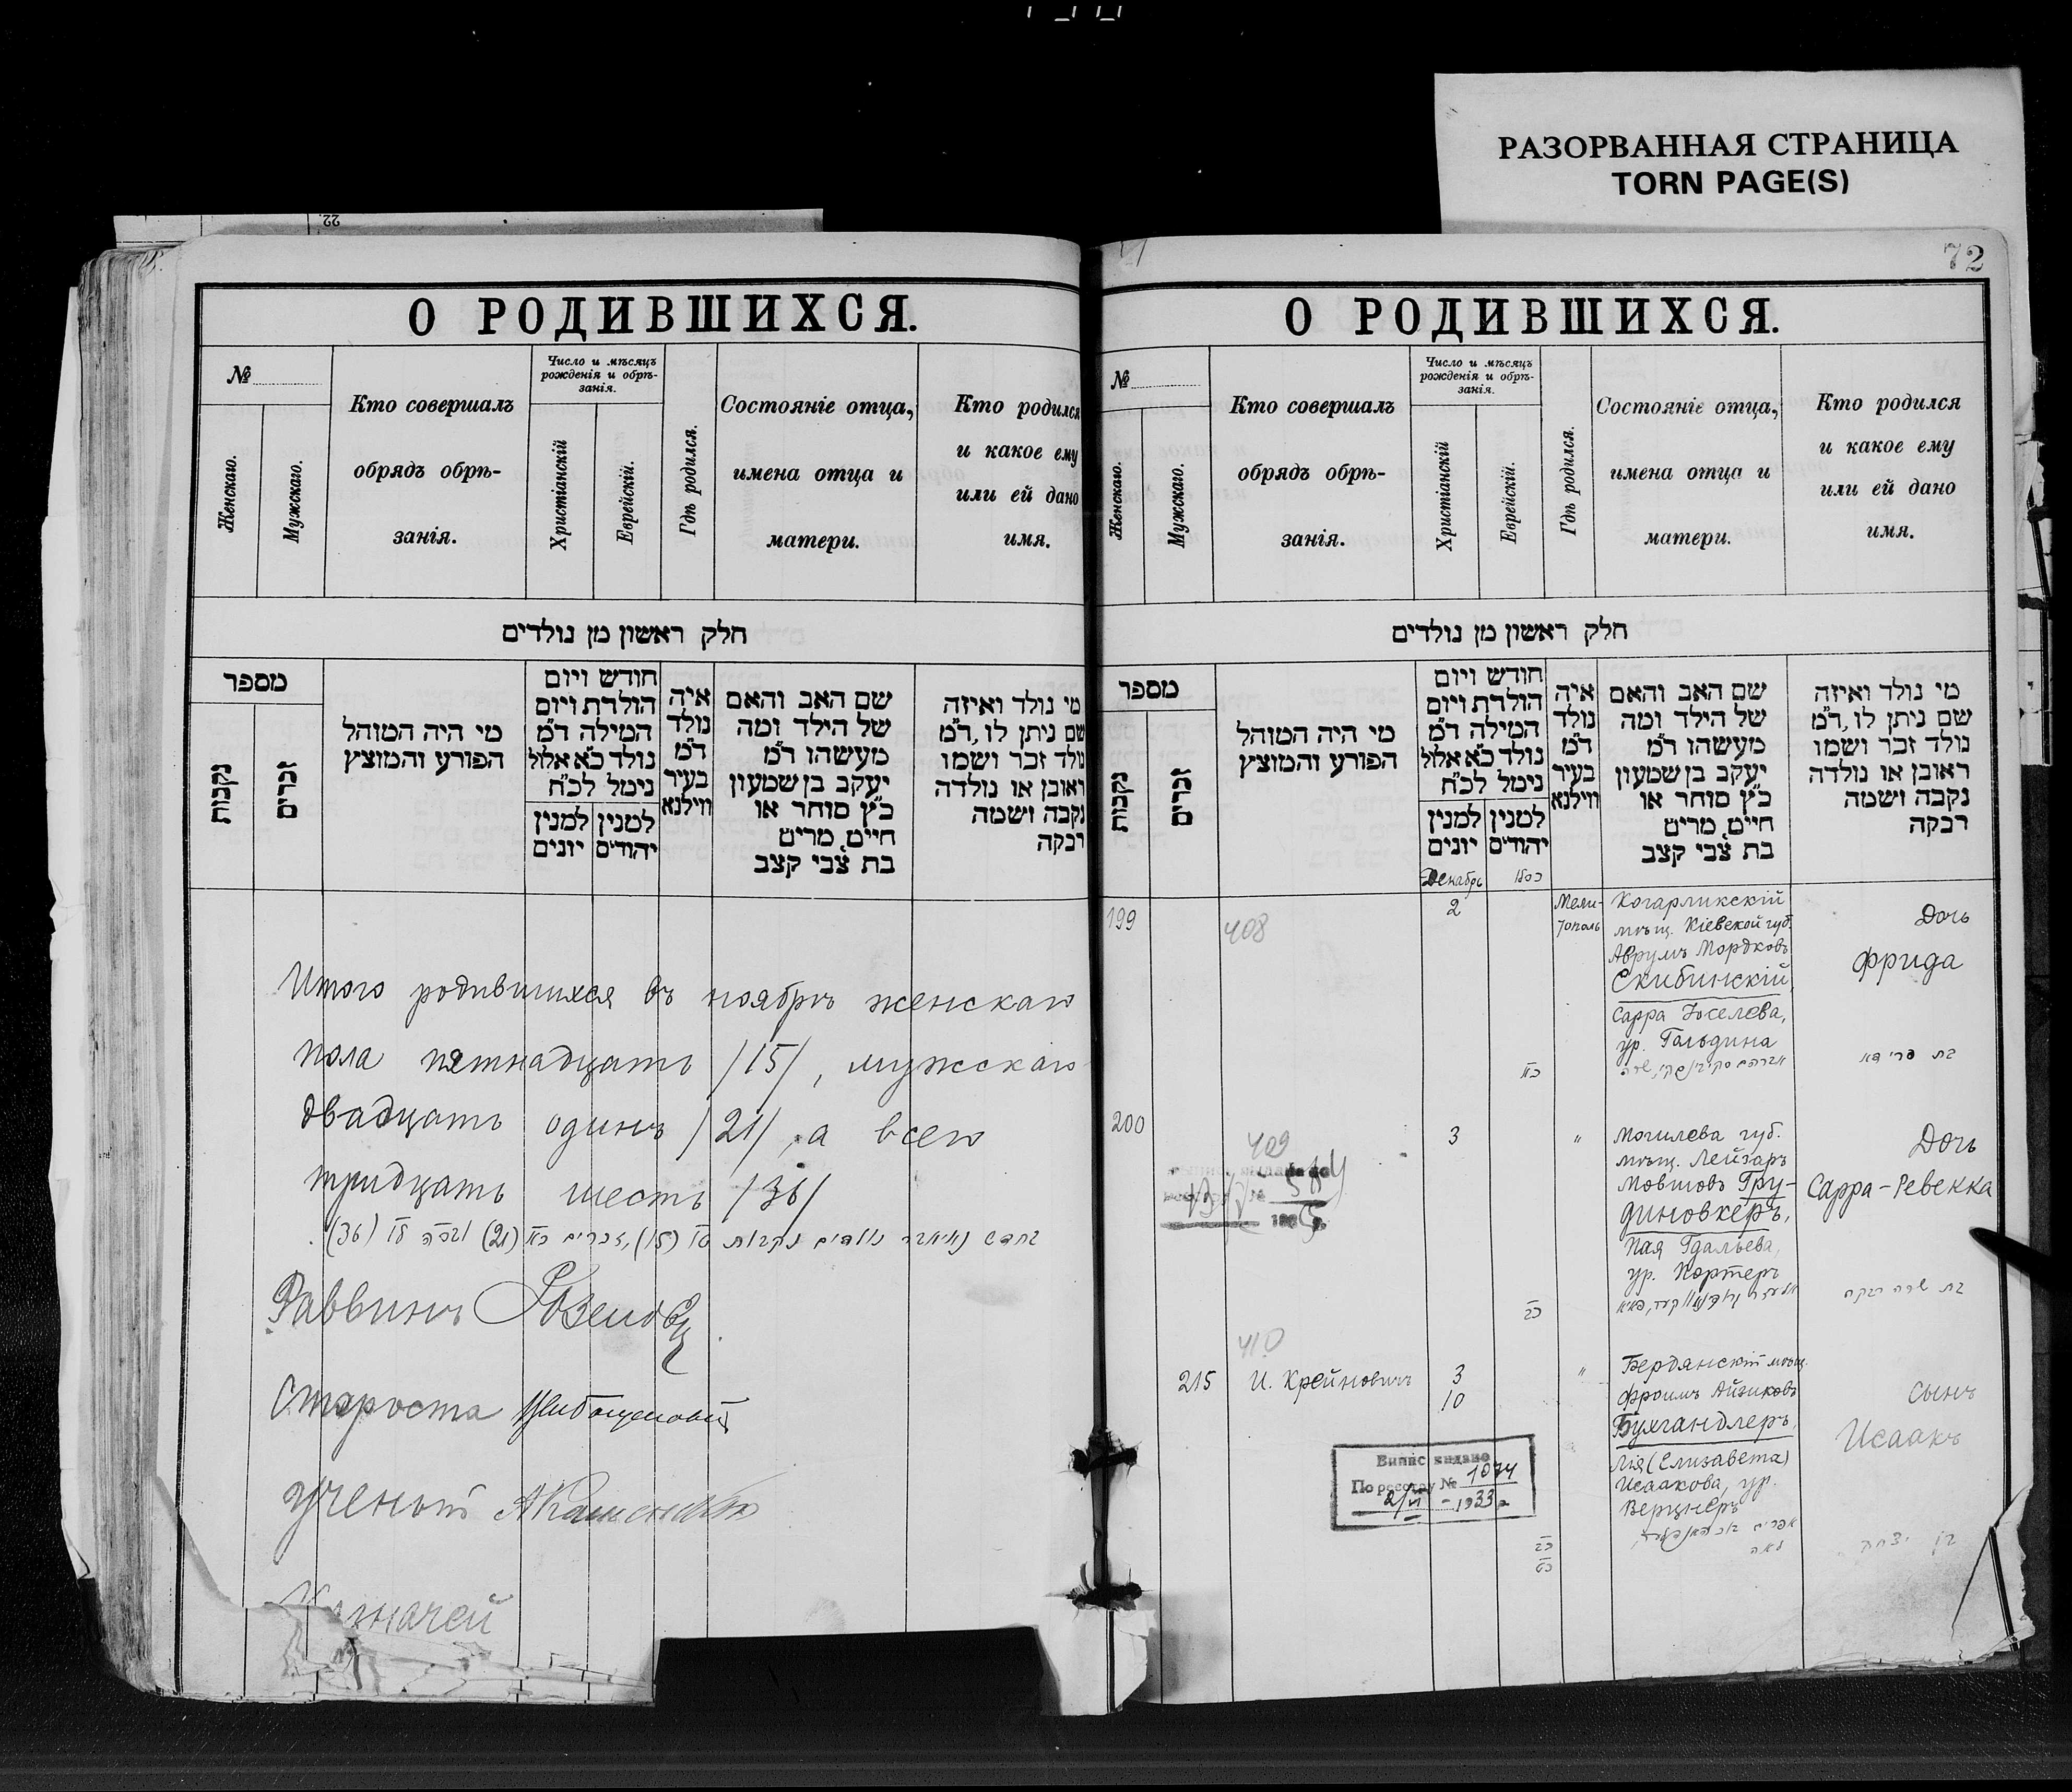 РАЗОРВАННАЯ СТРАНИЦА
TORN PAGE(S)
22
О РОДИВШИХСЯ.
№
Женскаго.
Мужскаго.
Кто совершалъ
обрядъ обрѣ-
занія.
Число и мѣсяцъ
рожденія и обрѣ-
занія.
Христіанскій
Еврейскій.
Гдѣ родился.
Состояніе отца,
имена отца и
матери.
Кто родился
и какое ему
или ей дано
имя.
חלק ראשון מן נולדים
מספר
נקבות
זכרים
מי היה המוהל
הפורע והמוצץ
חודש ויום
הולדת ויום
המילה ד״מ
נולד כ״א אלול
נימל לכ״ח
למנין
יונים
למנין
יהודים
איה
נולד
ד״מ
בעיר
ווילנא
שם האב והאם
של הילד ומה
מעשהו ד״מ
יעקב בן שמעון
כ״ץ סוחר או
חיים, מריט
בת צבי קצב
מי נולד ואיזה
שם ניתן לו, ד״מ
נולד זכר ושמו
ראובן או נולדה
נקבה ושמה
רבקה
Итого родившихся въ ноябрѣ женскаго
пола пятнадцать /15/, мужскаго
двадцать одинъ /21/, а всего
тридцать шесть /36/
Раввинъ
Староста
Ученый
72
О РОДИВШИХСЯ.
№
Женскаго.
Мужскаго.
Кто совершалъ
обрядъ обрѣ-
занія.
Число и мѣсяцъ
рожденія и обрѣ-
занія.
Христіанскій
Еврейскій.
Гдѣ родился.
Состояніе отца,
имена отца и
матери.
Кто родился
и какое ему
или ей дано
имя.
חלק ראשון מן נולדים
מספר
נקבות
זכרים
מי היה המוהל
הפורע והמוצץ
חודש ויום
הולדת ויום
המילה ד״מ
נולד כ״א אלול
נימל לכ״ח
למנין
יונים
למנין
יהודים
איה
נולד
ד״מ
בעיר
ווילנא
שם האב והאם
של הילד ומה
מעשהו ד״מ
יעקב בן שמעון
כ״ץ סוחר או
חיים, מריט
בת צבי קצב
מי נולד ואיזה
שם ניתן לו, ד״מ
נולד זכר ושמו
ראובן או נולדה
נקבה ושמה
רבקה
Декабрь
כסלו
199
408
2
Мели-
тополь
Когарликскій
мѣщ. Кіевской губ.
Аврумъ Мордковъ
Скибинскій,
Сарра Іоселева,
ур. Гольдина
Дочь
Фрида
כא
בת פרידא
200
409
3
"
Могилева губ.
мѣщ. Лейзаръ
Мовшовъ Гру-
диновкеръ,
Пая Гдальева,
ур. Портеръ
Дочь
Сарра-Ревекка
כב
בת שרה רבקה
410
215
И. Крейновичъ
3
10
"
Бердянскій мѣщ.
Фроимъ Айзиковъ
Бухгандлеръ,
Лія (Елизавета)
Исаакова, ур.
Верцнеръ
Сынъ
Исаакъ
כב
כט
בן יצחק
Випис видано
По реестру № 1074
2/VI - 1933